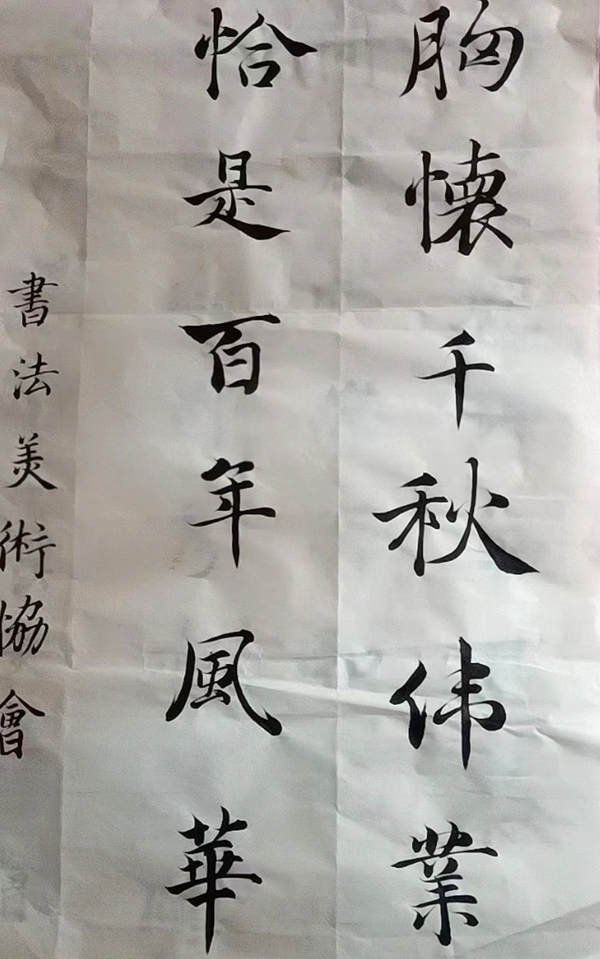 胸懷千秋伟業
恰是百年風華
書法美術協會